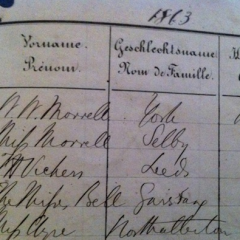 1863
Vorname. Geschlechtsname
Prénom. Nom de Famille.
W. W. Morrell York
Miss Morrell Selby
Vickers Leeds
The Misses Bell
Miss Ayre Northallerton